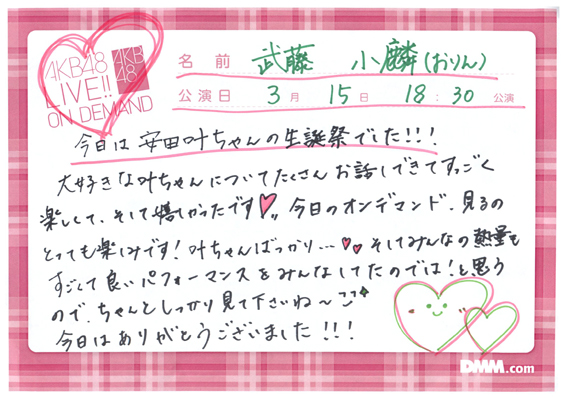 AKB48
LIVE!!
ON DEMAND
AKB
48
名前 武藤 小麟(おりん)
公演日 3月 15日 18:30 公演
今日は 安田叶ちゃんの生誕祭でした!!!
大好きな叶ちゃんについてたくさんお話しできてすっごく
楽しくて、そして嬉しかったです 今日のオンデマンド、見るの
とっても楽しみです!叶ちゃんばっかり… そしてみんなの熱量も
すごくて良いパフォーマンスをみんなしてたのでは!と思う
ので、ちゃんとしっかり見て下さいね〜
今日はありがとうございました!!!
DMM.com